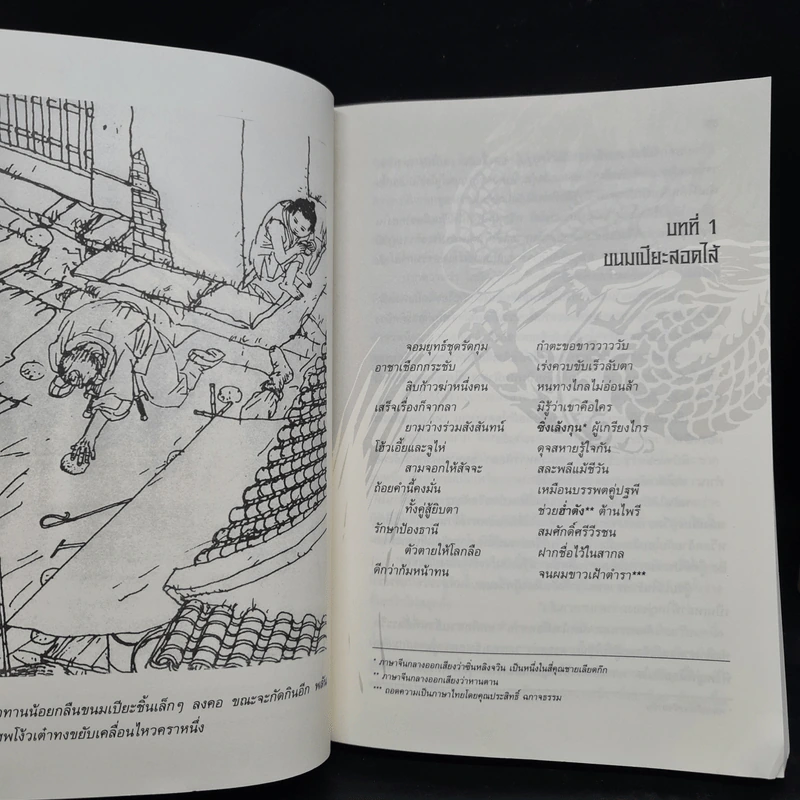 ทานน้อยกลืนขนมเปียะชิ้นเล็กๆ ลงคอ ขณะจะกัดกินอีก
โง้วเต๋าทงขยับเคลื่อนไหวคราหนึ่ง
บทที่ 1
ขนมเปียะสอดไส้
จอมยุทธ์ชุดรัดกุม กำตะขอขาววาววับ
อาชาเชือกกระชับ เร่งควบขับเร็วลับตา
สิบก้าวฆ่าหนึ่งคน หนทางไกลไม่อ่อนล้า
เสร็จเรื่องก็จากลา มิรู้ว่าเขาคือใคร
ยามว่างร่วมสังสันทน์ ซิ่งเล้งกุน* ผู้เกรียงไกร
โฮ้วเอี้ยและจูไห่ ดุจสหายรู้ใจกัน
สามจอกให้สัจจะ สละพลีแม้ชีวัน
ถ้อยคำนี้คงมั่น เหมือนบรรพตคู่ปฐพี
ทั้งคู่สู้ยิบตา ช่วยฮ่ำตัง** ต้านไพรี
รักษาป้องธานี สมศักดิ์ศรีวีรชน
ตัวตายให้โลกลือ ฝากชื่อไว้ในสากล
ดีกว่าก้มหน้าทน จนผมขาวเฝ้าตำรา***
* ภาษาจีนกลางออกเสียงว่าซิ่นหลิงจวิน เป็นหนึ่งในสี่คุณชายเลียดก๊ก
** ภาษาจีนกลางออกเสียงว่าหานตาน
*** ถอดความเป็นภาษาไทยโดยคุณประสิทธิ์ ฉกาจธรรม